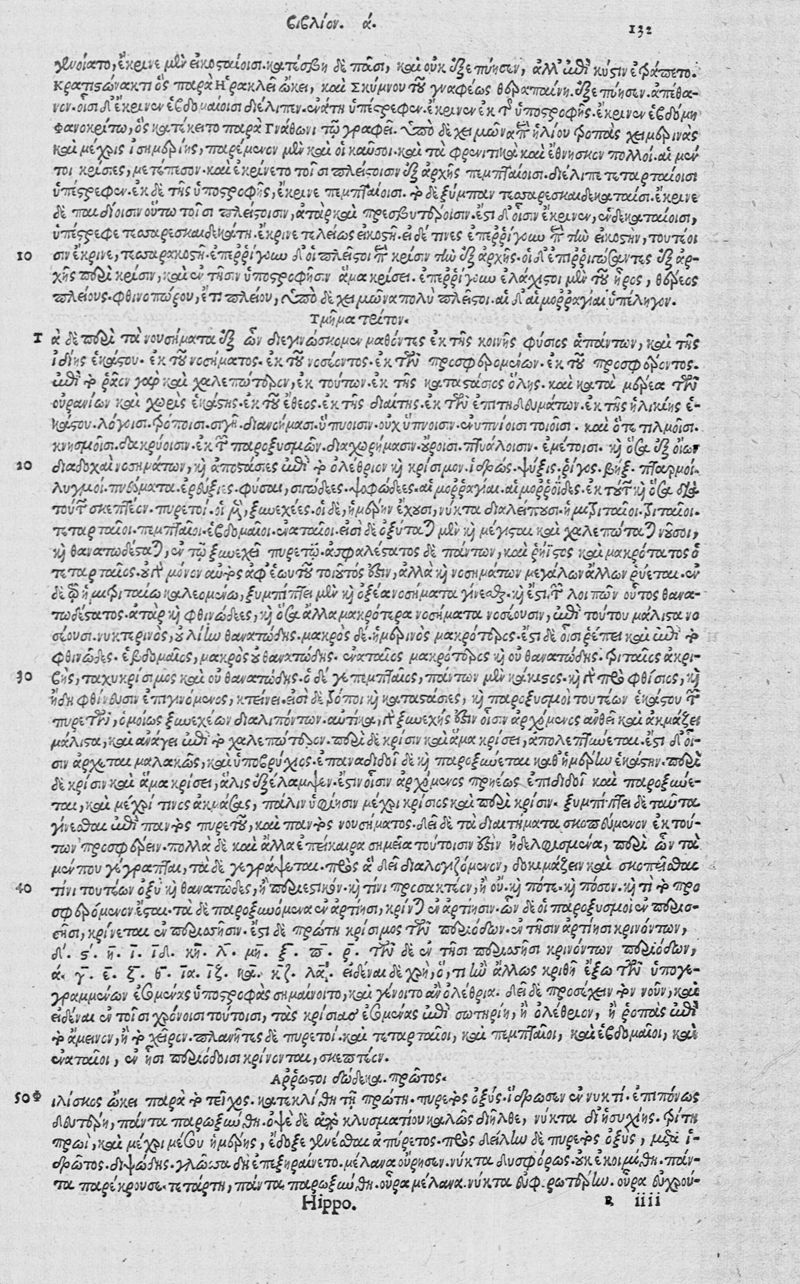 βιβλίον. ά.
132
γενοίατο, ἔκρινε μὲν εἰκοσταίοισι. κατέσβη δὲ πᾶσι, καὶ οὐκ ἐξεπύησεν, ἀλλ' ἐπὶ κύστιν ἐφάπετο.
Κρατιστώνακτι ὃς παρὰ Ἡρακλεῖ ᾤκει, καὶ Σκύμνου τοῦ γναφέως θεραπαίνῃ. ἐξεπύησεν. ἀπέθα-
νεν. οἷσι δ' ἔκρινεν ἑβδομαίοισι διέλιπεν. ἐνάτῃ ὑπέστρεφεν. ἔκρινεν ἐκ τῆς ὑποστροφῆς. ἔκρινεν ἑβδόμῃ
Φανοκρίτῳ, ὃς κατέκειτο παρὰ Γνάθωνι τῷ γραφεῖ. ὑπὸ δὲ χειμῶνα περὶ ἡλίου τροπὰς χειμερινὰς
καὶ μέχρις ἰσημερίης, παρέμενον μὲν καὶ οἱ καῦσοι. καὶ τὰ φρενιτικὰ καὶ ἔθνησκον πολλοί. αἱ μέν
τοι κρίσιες, μετέπεσον. καὶ ἐκρίνετο τοῖσι πλείστοισιν ἐξ ἀρχῆς πεμπταίοισι. διέλιπε τεταρταίοισι
ὑπέστρεφεν. ἐκ δὲ τῆς ὑποστροφῆς, ἔκρινε πεμπταίοισι. τὸ δὲ ξύμπαν τεσσαρεσκαιδεκαταίσι. ἔκρινε
δὲ παιδίοισιν οὕτω τοῖσι πλείστοισιν, ἀτὰρ καὶ πρεσβυτέροισιν. ἔστι δ' οἷσιν ἔκρινεν, ἑνδεκαταίοισι,
ὑπέστρεφε τεσσαρεσκαιδεκάτῃ. ἔκρινε τελείως εἰκοστῇ. εἰ δέ τινες ἐπερρίγουν περὶ τὴν εἰκοστὴν, τουτέοι
10
σιν ἔκρινε, τεσσαρακοστῇ. ἐπερρίγουν δ' οἱ πλεῖστοι περὶ κρίσιν τὴν ἐξ ἀρχῆς. οἱ δ' ἐπιρριγώσαντες ἐξ ἀρ-
χῆς περὶ κρίσιν, καὶ ἐν τῇσιν ὑποστροφῇσιν ἅμα κρίσει. ἐπερρίγουν ἐλάχιστοι μὲν τοῦ ἦρος, θέρεος
πλείους. φθινοπώρου, ἔτι πλείου, ὑπὸ δὲ χειμῶνα πολὺ πλεῖστοι. αἱ δ' αἱμορραγίαι ὑπέληγον.
Τμῆμα τρίτον.
Τὰ δὲ περὶ τὰ νουσήματα ἐξ ὧν διεγινώσκομεν μαθόντες ἐκ τῆς κοινῆς φύσιος ἁπάντων, καὶ τῆς
ἰδίης ἑκάστου. ἐκ τοῦ νοσήματος. ἐκ τοῦ νοσέοντος. ἐκ τῶν προσφερομένων. ἐκ τοῦ προσφέροντος.
ἐπὶ τὸ ῥᾷον γὰρ καὶ χαλεπώτερον, ἐκ τούτων. ἐκ τῆς καταστάσιος ὅλης. καὶ κατὰ μέρεα τῶν
οὐρανίων καὶ χωρὶς ἑκάστης. ἐκ τοῦ ἔθεος. ἐκ τῆς διαίτης. ἐκ τῶν ἐπιτηδευμάτων. ἐκ τῆς ἡλικίης ἑ-
κάστου. λόγοισι. τρόποισι. σιγῇ. διανοήμασι. ὕπνοισιν. οὐχ ὕπνοισιν. ἐνυπνίοισι τοίοισι. καὶ ὅτε τιλμοῖσι.
κνησμοῖσι. δακρύοισιν. ἐκ τῶν παροξυσμῶν. διαχωρήμασιν. οὔροισι. πτυάλοισιν. ἐμέτοισι. κỳ ὅσα ἐξ οἵων
20
διαδοχαὶ νοσημάτων, καὶ ἀποστάσιες ἐπὶ τὸ ὀλέθριον καὶ κρίσιμον. ἱδρώς. ψύξις. ῥῖγος. βήξ. πταρμοί.
λυγμοί. πνεύματα. ἐρεύξιες. φῦσαι, σιγώδεες. ψοφώδεες. αἱμορραγίαι. αἱμορροΐδες. ἐκ τούτων καὶ ὅσα διὰ
τούτων σκεπτέον. πυρετοὶ. οἱ μὲν, ξυνεχέες. οἱ δὲ, ἡμέρην ἔχουσι, νύκτα διαλείπουσι. ἡμιτριταῖοι. τριταῖοι.
τεταρταῖοι. πεμπταῖοι. ἑβδομαῖοι. ἐναταῖοι. εἰσὶ δὲ ὀξύταται μὲν καὶ μέγισται καὶ χαλεπώταται νοῦσοι,
καὶ θανατωδέσταται, ἐν τῷ ξυνεχεῖ πυρετῷ. ἀσφαλέστατος δὲ πάντων, καὶ ῥήϊστος καὶ μακρότατος ὁ
τεταρταῖος. οὐ γὰρ μόνον αὐτὸς ἀφ' ἑωυτοῦ τοιοῦτός ἐστιν, ἀλλὰ καὶ νοσημάτων μεγάλων ἄλλων ῥύεται. ἐν
δὲ τῷ ἡμιτριταίῳ καλεομένῳ, ξυμπίπτει μὲν καὶ ὀξέα νοσήματα γίνεσθαι. καὶ ἔστι τῶν λοιπῶν οὗτος θανα-
τωδέστατος. ἀτὰρ καὶ φθινώδεες, καὶ ὅσα ἄλλα μακρότερα νοσήματα νοσέουσιν, ἐπὶ τούτου μάλιστα νο
σέουσι. νυκτερινὸς, οὐ λίην θανατώδης. μακρὸς δέ. ἡμερινὸς μακρότερος. ἔστι δὲ οἷσι ῥέπει καὶ ἐπὶ τὸ
φθινῶδες. ἑβδομαῖος, μακρὸς οὐ θανατώδης. ἐναταῖος μακρότερος καὶ οὐ θανατώδης. τριταῖος ἀκρι-
30
βὴς, ταχυκρίσιμος καὶ οὐ θανατώδης. ὁ δέ γε πεμπταῖος, πάντων μὲν κάκιστος. καὶ γὰρ πρὸ φθίσιος, καὶ
ἤδη φθίνουσιν ἐπιγινόμενος, κτείνει. εἰσὶ δὲ τρόποι καὶ καταστάσιες, καὶ παροξυσμοὶ τουτέων ἑκάστου τῶν
πυρετῶν, ὁμοίως ξυνεχέων διαλιπόντων. αὐτίκα, γὰρ ξυνεχὴς ἐστιν οἷσιν ἀρχόμενος ἀνθεῖ καὶ ἀκμάζει
μάλιστα, καὶ ἀνάγει ἐπὶ τὸ χαλεπώτερον. περὶ δὲ κρίσιν καὶ ἅμα κρίσει, ἀπολεπτύνεται. ἔστι δ' οἷ-
σιν ἄρχεται μαλακῶς, καὶ ὑποβρύχιος. ἐπαναδιδοῖ δὲ καὶ παροξύνεται καθ' ἡμέρην ἑκάστην. περὶ
δὲ κρίσιν καὶ ἅμα κρίσει, ἅλις ἐξέλαμψεν. ἔστιν οἷσιν ἀρχόμενος πρηέως ἐπιδιδοῖ καὶ παροξύνε-
ται, καὶ μέχρι τινὸς ἀκμάσας, πάλιν ὑφίησιν μέχρι κρίσιος καὶ περὶ κρίσιν. ξυμπίπτει δὲ ταῦτα
γίνεσθαι ἐπὶ παντὸς πυρετοῦ, καὶ παντὸς νουσήματος. δεῖ δὲ τὰ διαιτήματα σκοπεύμενον ἐκ του-
των προσφέρειν. πολλὰ δὲ καὶ ἄλλα ἐπίκαιρα σημεῖα τούτοισιν ἐστὶν ἠδελφισμένα, περὶ ὧν τὰ
μέν που γέγραπται, τὰ δὲ γεγράψεται. πρὸς ἃ δεῖ διαλογιζόμενον, δοκιμάζειν καὶ σκοπεῖσθαι
40
τίνι τουτέων ὀξὺ καὶ θανατῶδες, ἢ περιεστικόν. καὶ τίνι προσακτέον, ἢ οὔ. καὶ πότε. καὶ πόσον. καὶ τί τὸ προ
σφερόμενον ἔσται. τὰ δὲ παροξυνόμενα ἐν ἀρτίῃσι, κρίνεται ἐν ἀρτίῃσιν. ὧν δὲ οἱ παροξυσμοὶ ἐν περισ-
σῇσι, κρίνεται ἐν περισσῇσιν. ἔστι δὲ πρώτη κρίσιμος τῶν περιόδων. ἐν τῇσιν ἀρτίῃσι κρινόντων,
δ̄. ϛ̄. η̄. ῑ. ῑδ. κη̄. λ̄. μη̄. ξ̄. π̄. ρ̄. τῶν δὲ ἐν τῇσι περισσῇσι κρινόντων περιόδων,
ά. γ̄. ε̄. ζ̄. θ̄. ῑα. ῑζ. κα. κ̄ζ. λᾱ. εἰδέναι δὲ χρὴ, ὅ, τι ἢν ἄλλως κριθῇ ἔξω τῶν ὑπογε-
γραμμένων ἐσομένας ὑποστροφὰς σημαίνοιτο, καὶ γένοιτο ἂν ὀλέθρια. δεῖ δὲ προσέχειν τὸν νοῦν, καὶ
εἰδέναι ἐν τοῖσι χρόνοισι τούτοισι, τὰς κρίσιας ἐσομένας ἐπὶ σωτηρίην, ἢ ὀλέθριον, ἢ ῥοπὰς ἐπὶ
τὸ ἄμεινον, ἢ τὸ χεῖρον. πλάνητες δὲ πυρετοὶ. καὶ τεταρταῖοι, καὶ πεμπταῖοι, καὶ ἑβδομαῖοι, καὶ
ἐναταῖοι, ἐν ᾗσι περιόδοισι κρίνονται, σκεπτέον.
Ἄρρωστοι δώδεκα. πρῶτος.
50
Φιλίσκος ᾤκει παρὰ τὸ τεῖχος. κατεκλίθη τῇ πρώτῃ. πυρετὸς ὀξύς. ἵδρωσεν ἐν νυκτί. ἐπιπόνως
δευτέρῃ, πάντα παρωξύνθη. ὀψὲ δὲ ἀπὸ κλυσματίου καλῶς διῆλθε, νύκτα δι' ἡσυχίης. τρίτῃ
πρωῒ, καὶ μέχρι μέσου ἡμέρης, ἔδοξε γενέσθαι ἀπύρετος. πρὸς δείλην δὲ πυρετὸς ὀξὺς, μετὰ ἱ-
δρῶτος. διψώδης. γλῶσσα δὲ ἐπεξηραίνετο. μέλανα οὔρησεν. νύκτα δυσφόρως. οὐκ ἐκοιμήθη. πάν-
τα παρέκρουσε. τετάρτῃ, πάντα παρωξύνθη. οὖρα μέλανα. νύκτα εὐφορωτέρην. οὖρα εὐχρού-
Hippo.
R iiii